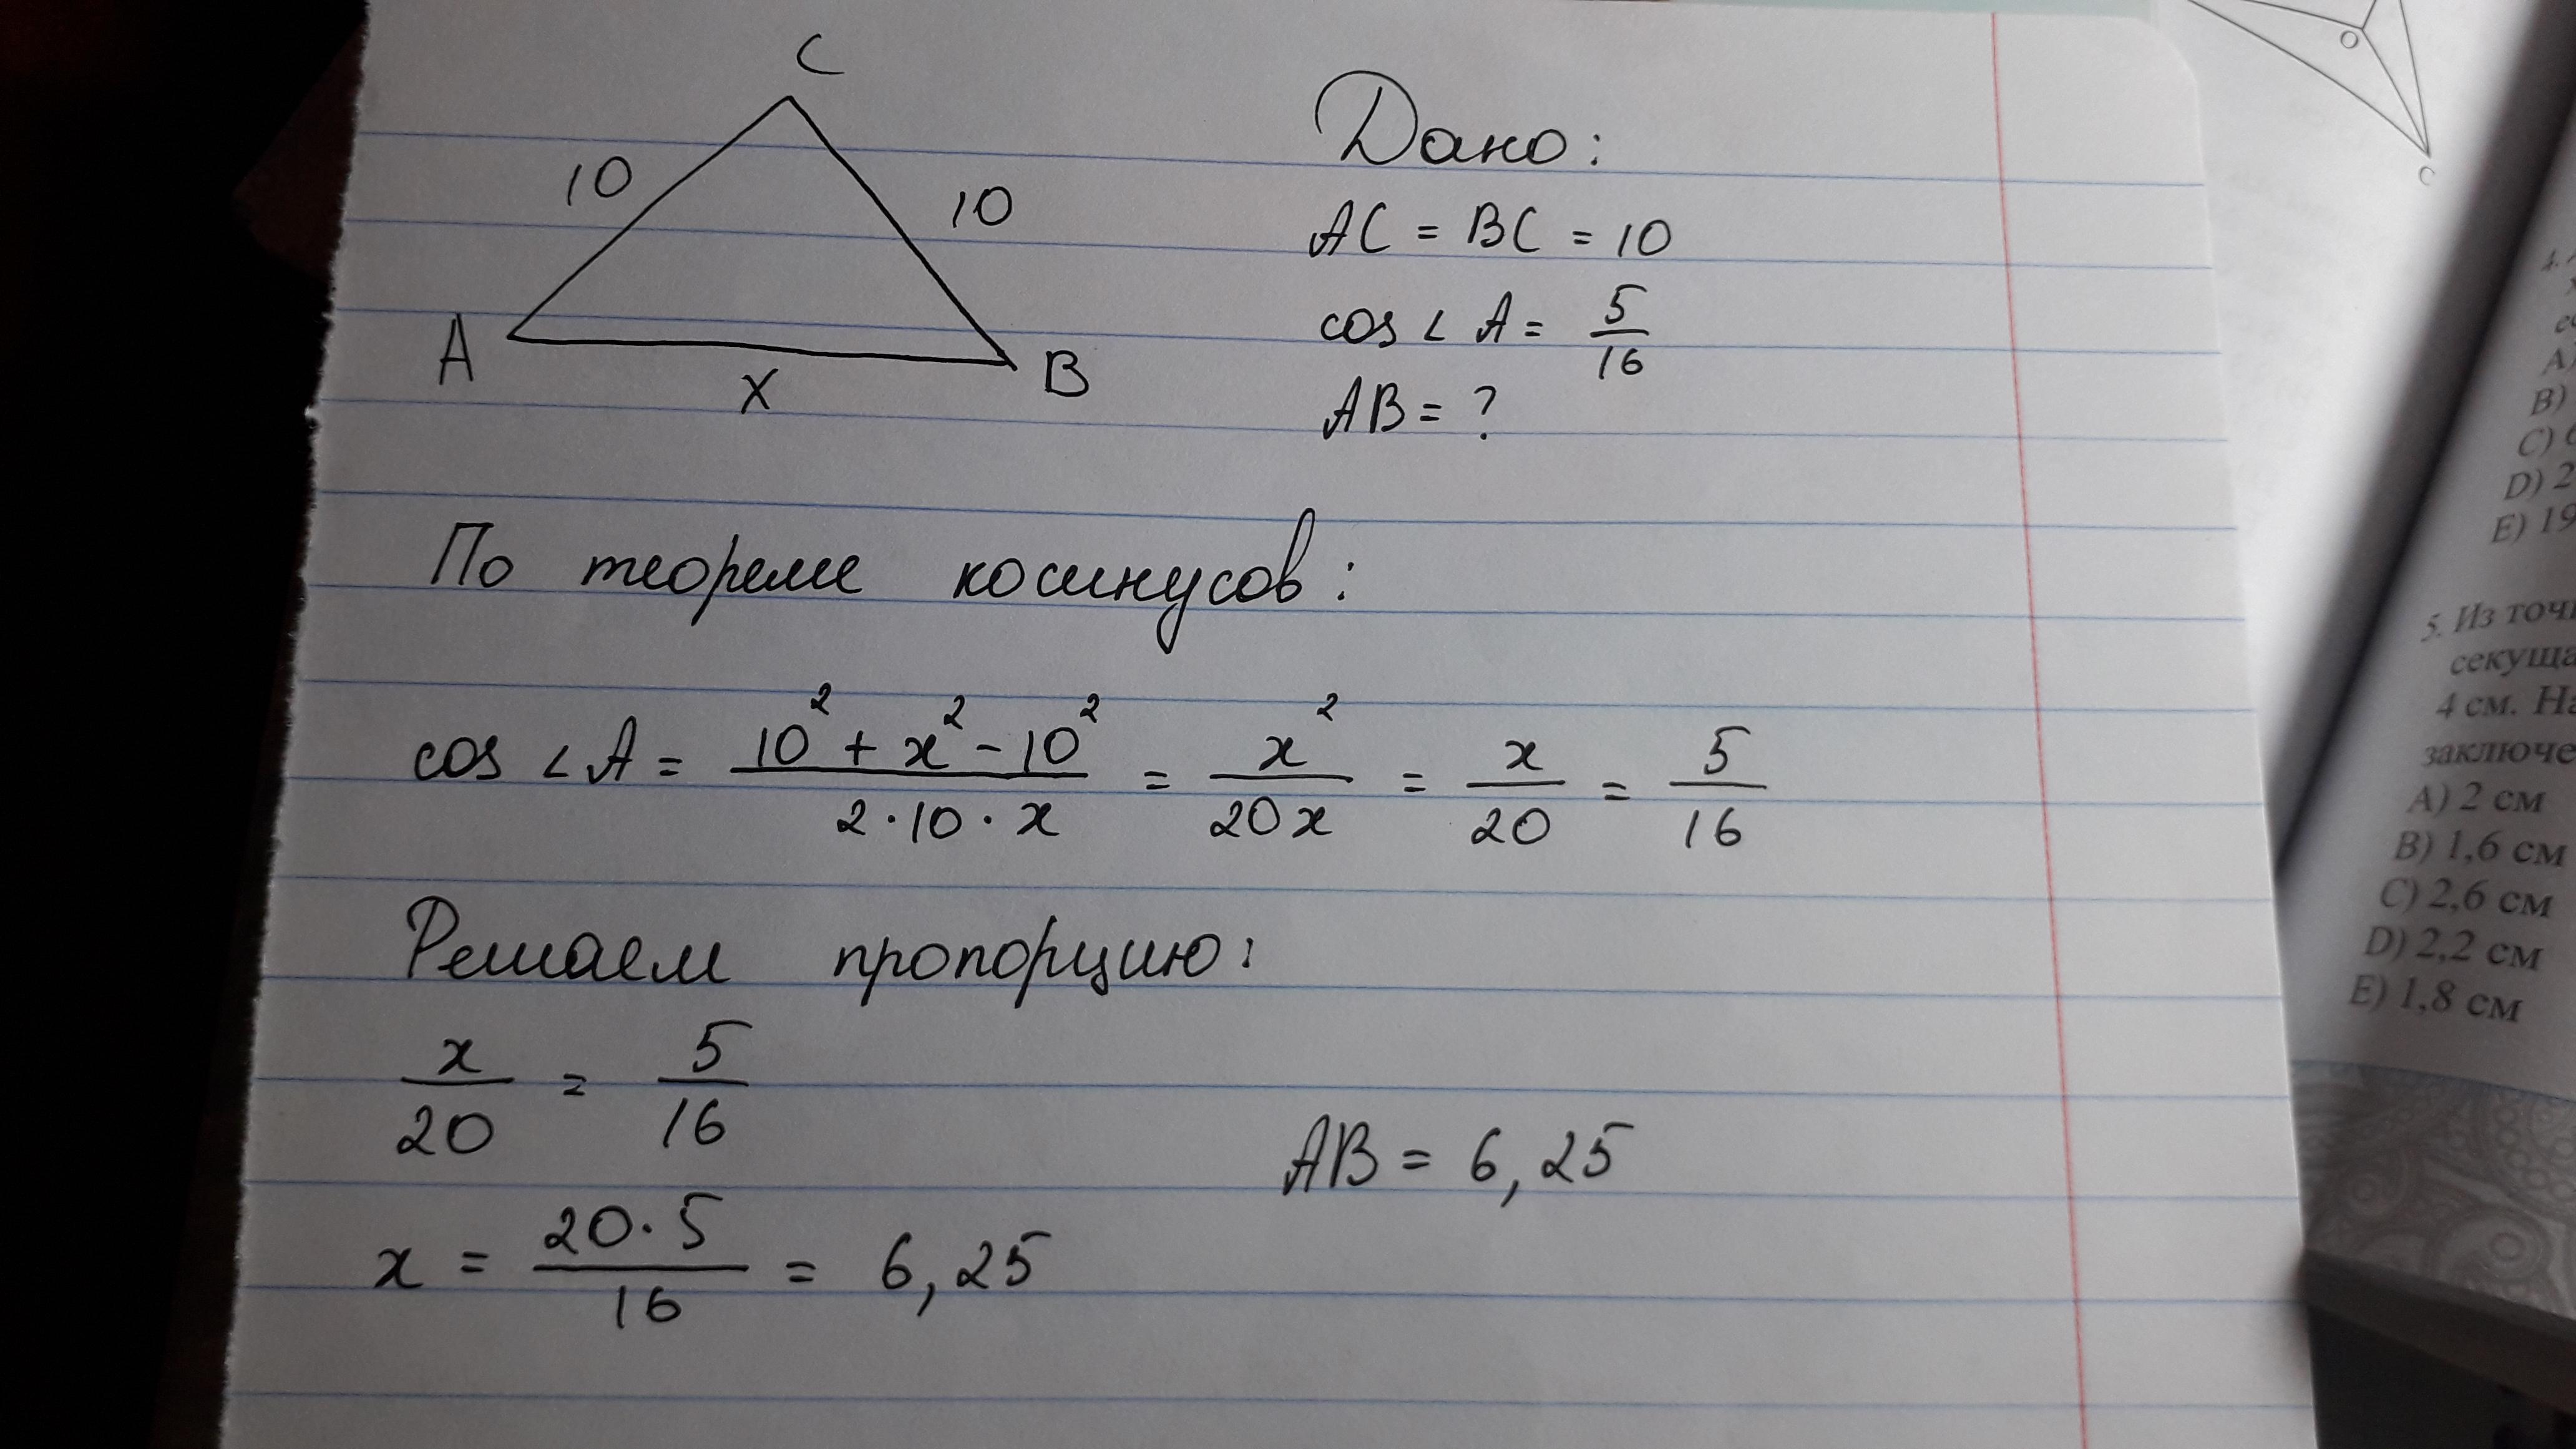 C
10
10
A
x
B
Дано:
AC = BC = 10
cos ∠ A = 5/16
AB = ?
По теореме косинусов:
cos ∠ A = (10² + x² - 10²)/(2 · 10 · x) = x²/(20x) = x/20 = 5/16
Решаем пропорцию:
x/20 = 5/16
x = (20 · 5)/16 = 6,25
AB = 6,25
O
C
A)
B)
C)
D) 2
E) 19
5. Из
4 см.
A) 2 см
B) 1,6 см
C) 2,6 см
D) 2,2 см
E) 1,8 см